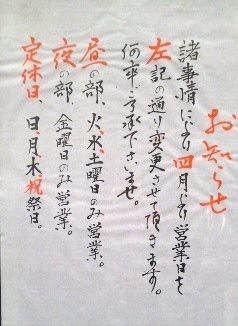 お知らせ
諸事情により四月より営業日を
左記の通り変更させて頂きます。
何卒ご了承下さいませ。
昼の部、火、水、土曜日のみ営業。
夜の部、金曜日のみ営業。
定休日、日、月、木、祝祭日。